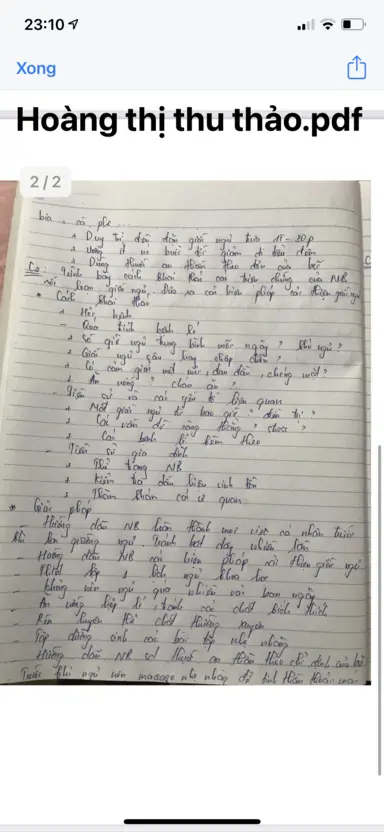 23:10
Xong
Hoàng thị thu thảo.pdf
2/2
bia, cà phê ...
+ Duy trì đều đặn giấc ngủ trưa 15-30p
+ Uống ít nc buổi tối giảm đi tiểu đêm
+ Dùng thuốc an thần theo đơn của bsĩ
C2: Trình bày cách khai thác các triệu chứng của NB
rối loạn giấc ngủ, đưa ra các biện pháp cải thiện giấc ngủ
* Cách khai thác
+ Hỏi bệnh
- Quá trình bệnh lí
+ Số giờ ngủ trung bình mỗi ngày? Khó ngủ?
+ Giấc ngủ sâu hay chập chờn?
+ Có cảm giác mệt mỏi, đau đầu, chóng mặt?
+ Ăn uống? chán ăn?
- Tiền sử và các yếu tố liên quan
+ Mất giấc ngủ từ bao giờ? điều trị?
+ Các vấn đề căng thẳng? stress?
+ Các bệnh lí kèm theo
- Tiền sử gia đình
+ Thể trạng NB
+ Kiểm tra dấu hiệu sinh tồn
+ Thăm khám các cơ quan
* Giải pháp
- Hướng dẫn NB hoàn thành mọi việc cá nhân trước
khi lên giường ngủ tránh bật dậy nhiều lần
- Hướng dẫn NB các biện pháp cải thiện giấc ngủ
- Thiết lập 1 lịch ngủ khoa học
- Không nên ngủ quá nhiều vào ban ngày
- Ăn uống hợp lí, tránh các chất kích thích
- Rèn luyện thể chất thường xuyên
- Tập dưỡng sinh các bài tập nhẹ nhàng
- Hướng dẫn NB sd thuốc an thần theo chỉ định của bsĩ
- Trước khi ngủ nên massage nhẹ nhàng để tinh thần thoải mái